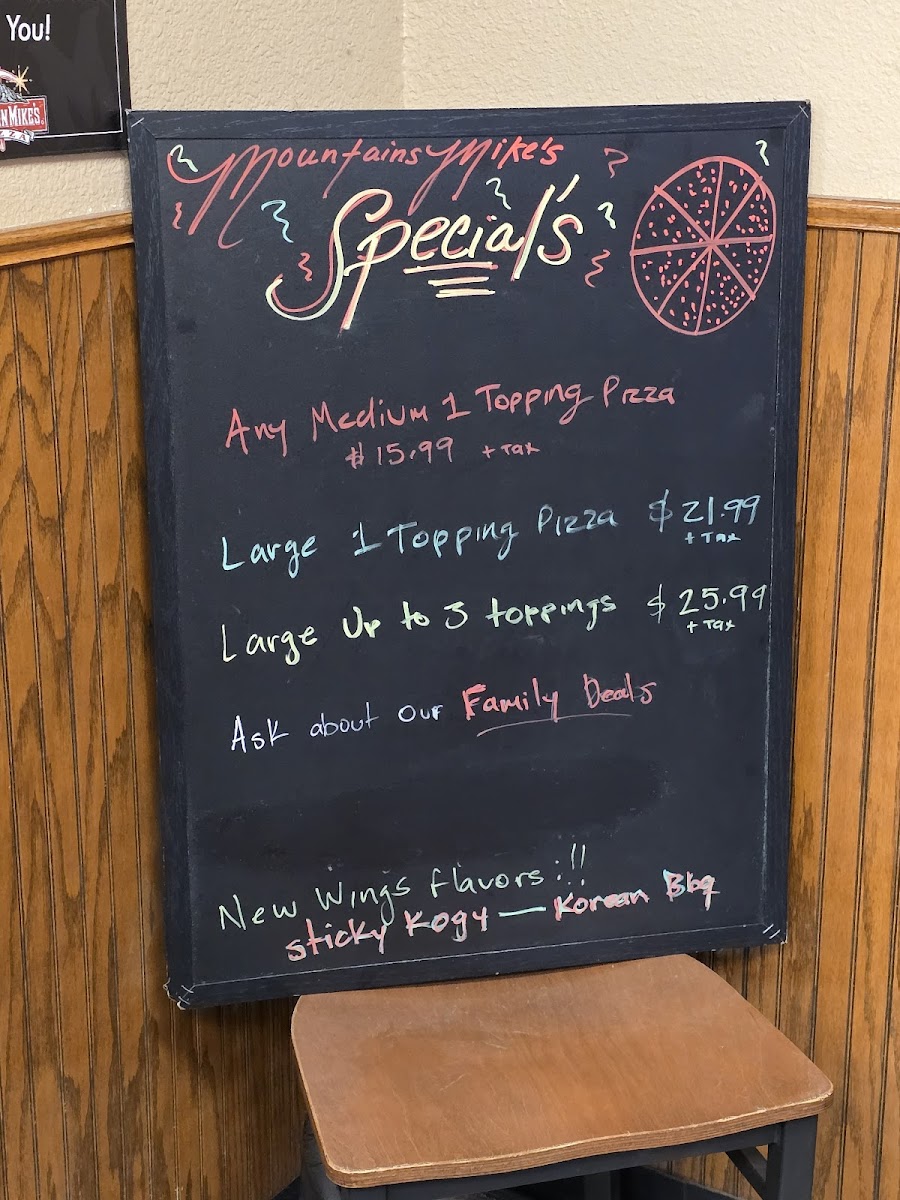 You!
NMIKE'S
ZZA
Mountains Mike's
Special's
Any Medium 1 Topping Pizza
$15.99 + Tax
Large 1 Topping Pizza $21.99
+ Tax
Large Up to 3 toppings $25.99
+ Tax
Ask about our Family Deals
New Wings flavors:!!
sticky Kogy — Korean Bbq